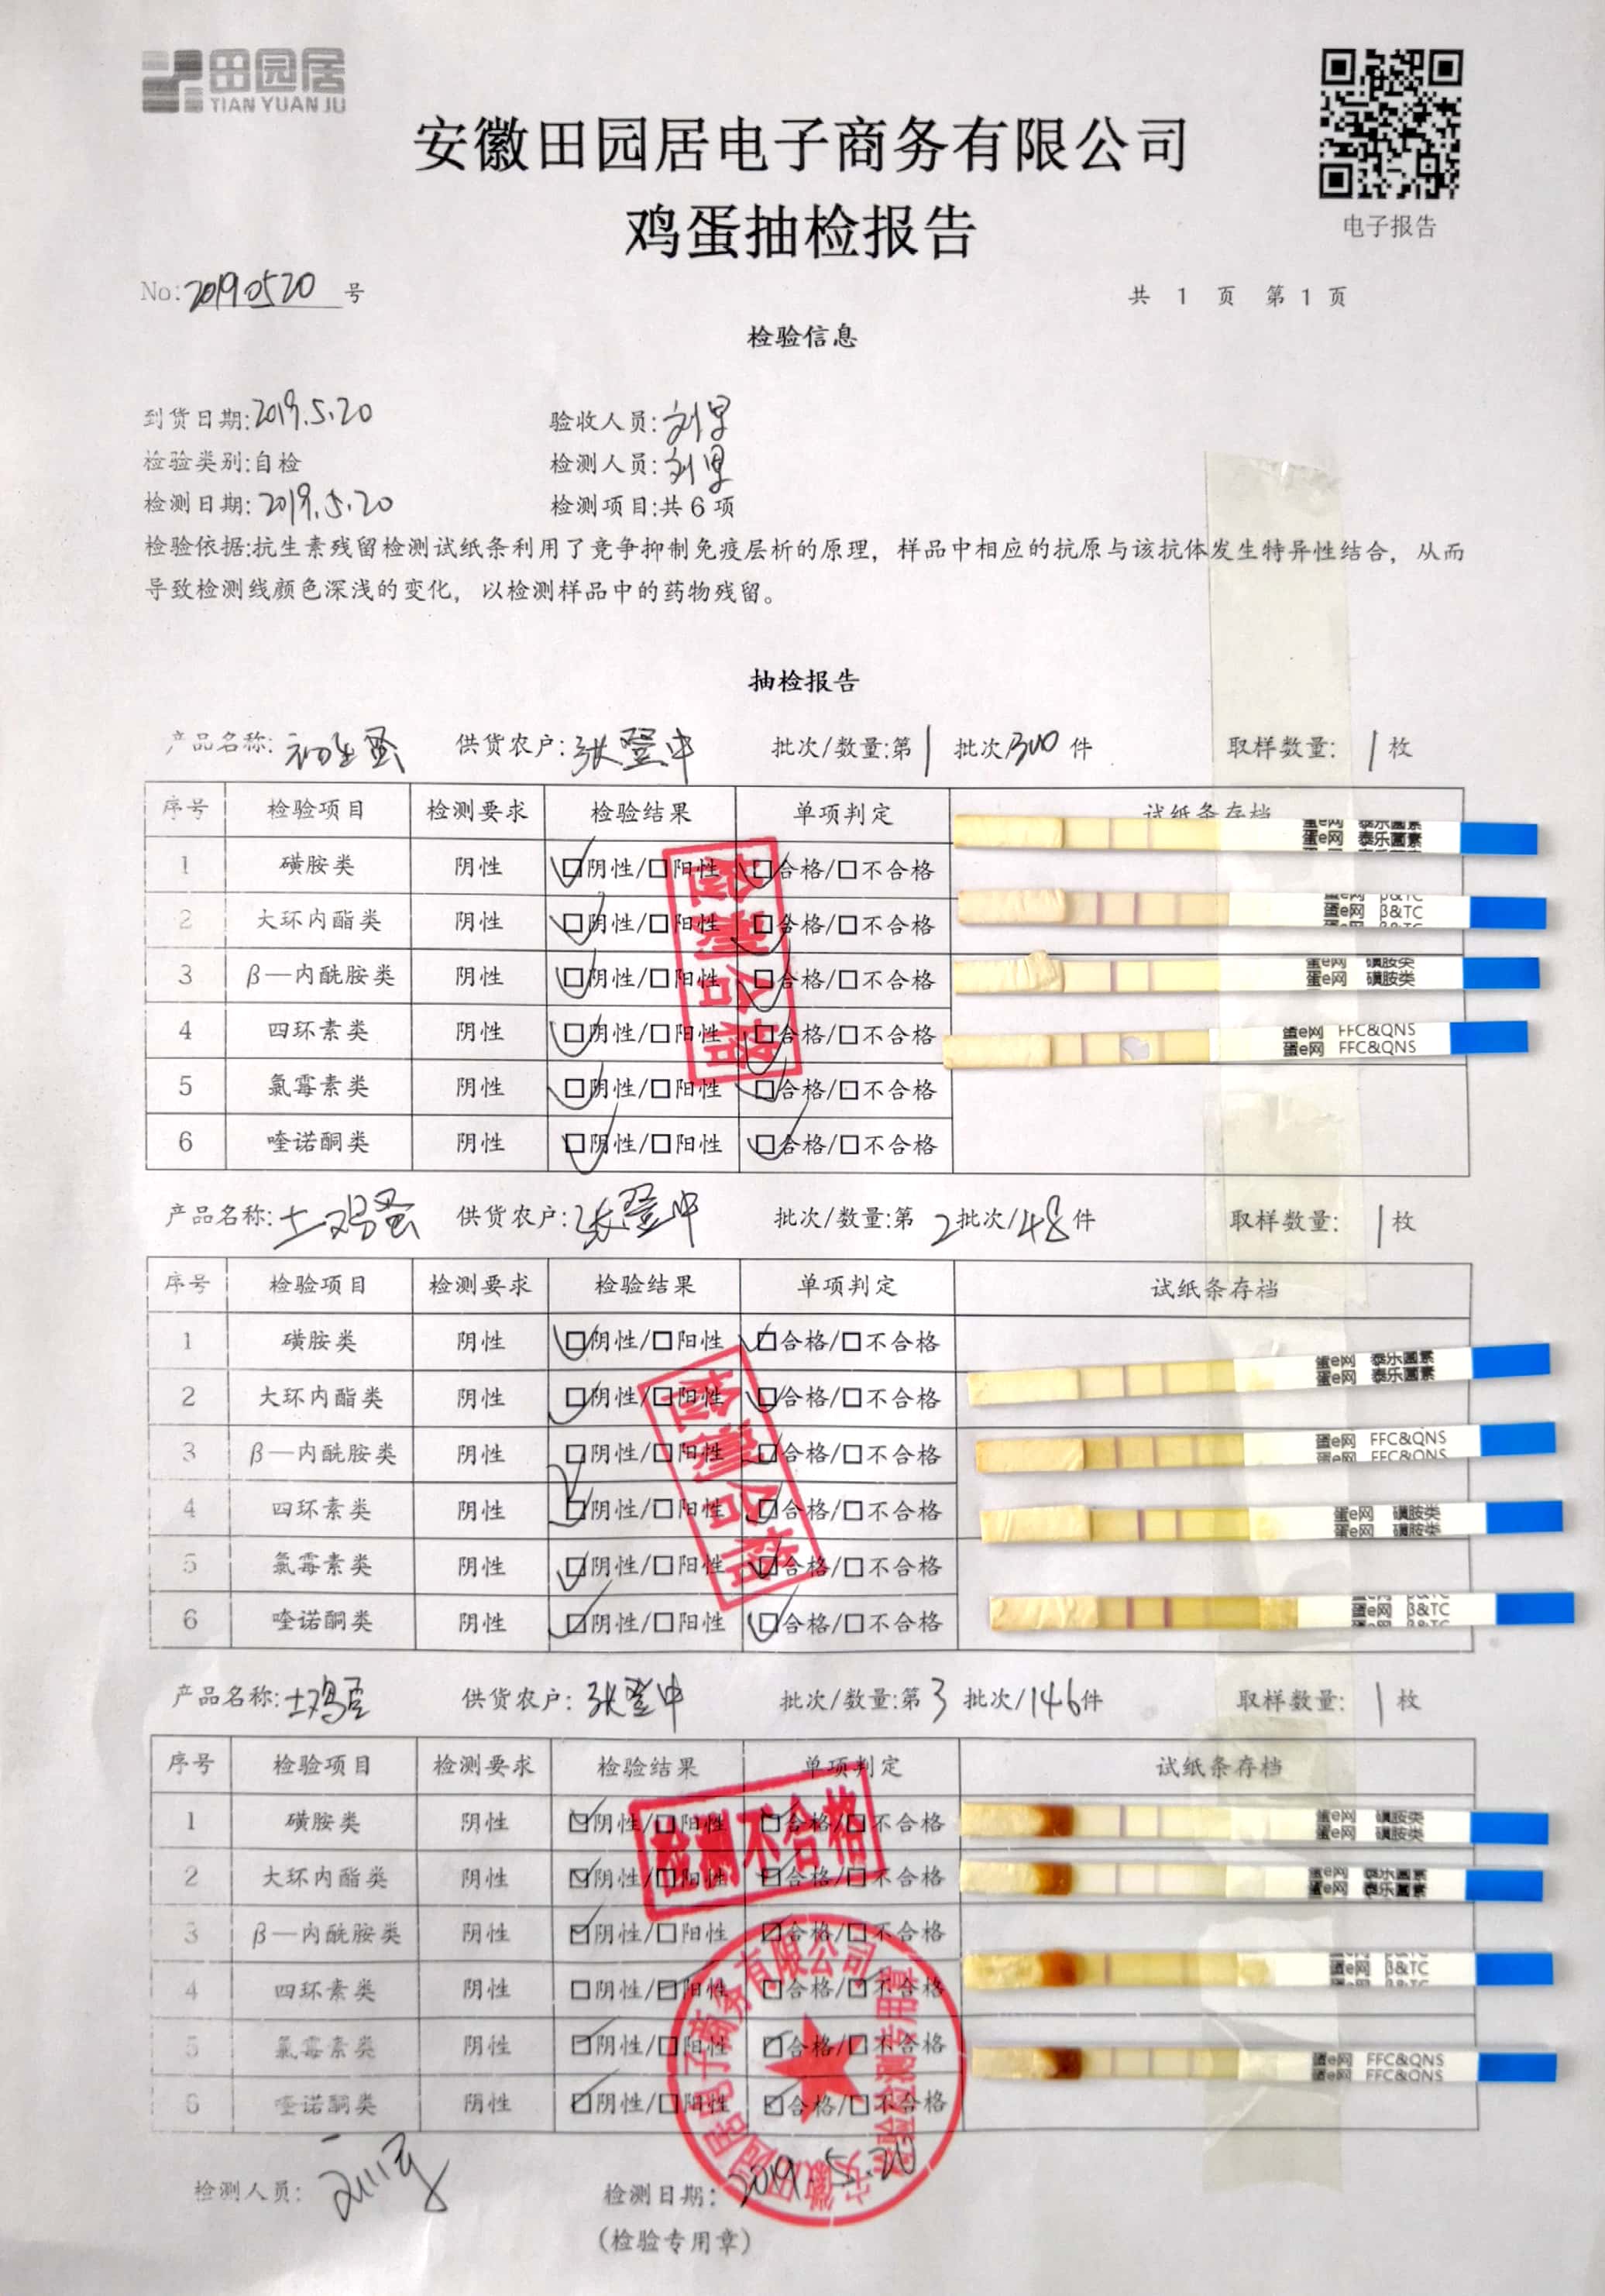 田园居
TIAN YUAN JU
安徽田园居电子商务有限公司
鸡蛋抽检报告
电子报告
No:20190520 号
共 1 页 第 1 页
检验信息
到货日期:2019.5.20 验收人员:
检验类别:自检 检测人员:
检测日期:2019.5.20 检测项目:共 6 项
检验依据:抗生素残留检测试纸条利用了竞争抑制免疫层析的原理，样品中相应的抗原与该抗体发生特异性结合，从而
导致检测线颜色深浅的变化，以检测样品中的药物残留。
抽检报告
产品名称:初生蛋 供货农户:张登中 批次/数量:第1批次/300件 取样数量:1枚
序号 检验项目 检测要求 检验结果 单项判定 试纸条存档
蛋e网 泰乐菌素
1 磺胺类 阴性 ☑阴性/□阳性 ☑合格/□不合格
2 大环内酯类 阴性 ☑阴性/□阳性 ☑合格/□不合格 蛋e网 β&TC
3 β—内酰胺类 阴性 ☑阴性/□阳性 ☑合格/□不合格 蛋e网 磺胺类
4 四环素类 阴性 ☑阴性/□阳性 ☑合格/□不合格 蛋e网 FFC&QNS
5 氯霉素类 阴性 ☑阴性/□阳性 ☑合格/□不合格
6 喹诺酮类 阴性 ☑阴性/□阳性 ☑合格/□不合格
检测合格
产品名称:土鸡蛋 供货农户:张登中 批次/数量:第2批次/48件 取样数量:1枚
序号 检验项目 检测要求 检验结果 单项判定 试纸条存档
1 磺胺类 阴性 ☑阴性/□阳性 ☑合格/□不合格
2 大环内酯类 阴性 ☑阴性/□阳性 ☑合格/□不合格 蛋e网 泰乐菌素
3 β—内酰胺类 阴性 □阴性/□阳性 ☑合格/□不合格 蛋e网 FFC&QNS
4 四环素类 阴性 ☑阴性/□阳性 ☑合格/□不合格 蛋e网 磺胺类
5 氯霉素类 阴性 ☑阴性/□阳性 ☑合格/□不合格
6 喹诺酮类 阴性 ☑阴性/□阳性 ☑合格/□不合格 蛋e网 β&TC
检测合格
产品名称:土鸡蛋 供货农户:张登中 批次/数量:第3批次/146件 取样数量:1枚
序号 检验项目 检测要求 检验结果 单项判定 试纸条存档
1 磺胺类 阴性 ☑阴性/□阳性 ☑合格/□不合格 蛋e网 磺胺类
2 大环内酯类 阴性 ☑阴性/□阳性 ☑合格/□不合格 蛋e网 泰乐菌素
3 β—内酰胺类 阴性 ☑阴性/□阳性 ☑合格/□不合格
4 四环素类 阴性 □阴性/☑阳性 □合格/☑不合格 蛋e网 β&TC
5 氯霉素类 阴性 ☑阴性/□阳性 ☑合格/□不合格 蛋e网 FFC&QNS
6 喹诺酮类 阴性 ☑阴性/□阳性 ☑合格/□不合格
检测不合格
安徽田园居电子商务有限公司
检验检测专用章
检测人员:
检测日期:2019.5.20
(检验专用章)